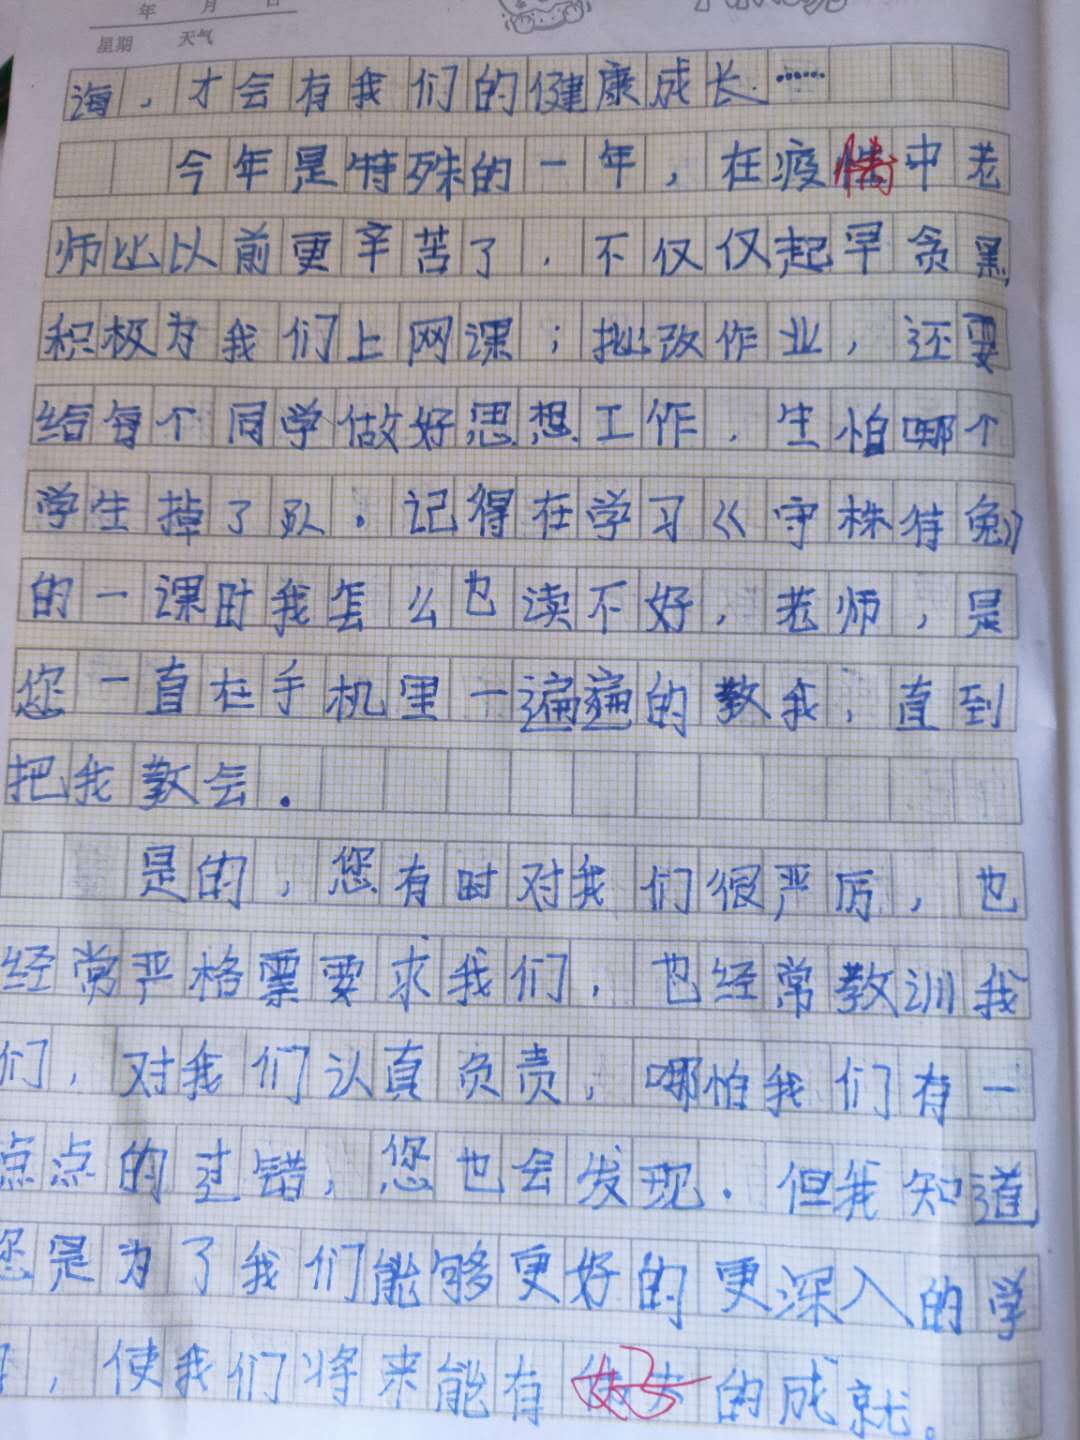 年 月 日
星期 天气
海，才会有我们的健康成长……
今年是特殊的一年，在疫情中老
师比以前更辛苦了．不仅仅起早贪黑
积极为我们上网课；批改作业，还要
给每个同学做好思想工作．生怕哪个
学生掉了队．记得在学习《守株待兔》
的一课时我怎么也读不好，老师，是
您一直在手机里一遍遍的教我，直到
把我教会．
是的，您有时对我们很严厉，也
经常严格票要求我们，也经常教训我
们，对我们认真负责，哪怕我们有一
点点的过错，您也会发现．但我知道
您是为了我们能够更好的更深入的学
，使我们将来能有好的成就。